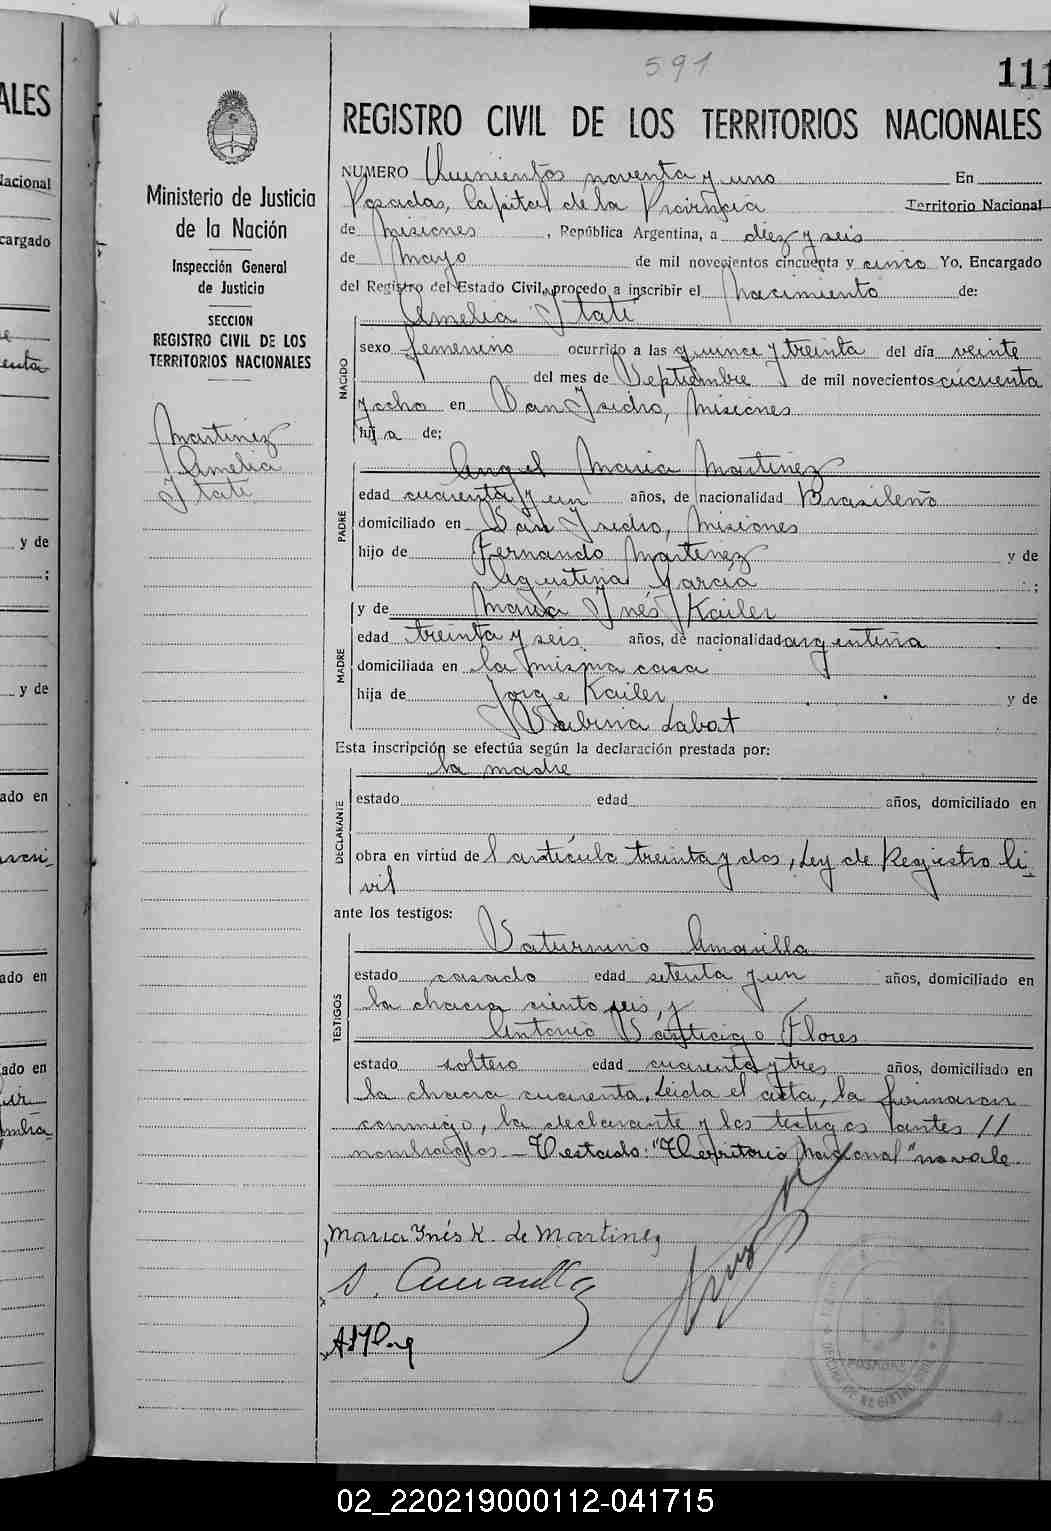 ALES
Nacional
cargado
y de
;
y de
ado en
ado en
ado en
591
111
REGISTRO CIVIL DE LOS TERRITORIOS NACIONALES
Ministerio de Justicia
de la Nación
Inspección General
de Justicia
SECCION
REGISTRO CIVIL DE LOS
TERRITORIOS NACIONALES
Martinez
Amelia
Itati
NUMERO Quinientos noventa y uno En
Posadas, Capital de la Provincia Territorio Nacional
de Misiones, República Argentina, a diez y seis
de Mayo de mil novecientos cincuenta y cinco Yo, Encargado
del Registro del Estado Civil, procedo a inscribir el Nacimiento de:
NACIDO
Amelia Itati
sexo femenino ocurrido a las quince y treinta del día veinte
del mes de Septiembre de mil novecientos cucuenta
y ocho en San Isidro, Misiones
hija de:
PADRE
Angel Maria Martinez
edad cuarenta y un años, de nacionalidad Brasileña
domiciliado en San Isidro, Misiones
hijo de Fernando Martinez y de
Agustina Garcia ;
y de Maria Inés Kailer
MADRE
edad treinta y seis años, de nacionalidad argentina
domiciliada en la misma casa
hija de Jorge Kailer y de
Sabina Labat
Esta inscripción se efectúa según la declaración prestada por:
DECLARANTE
la madre
estado edad años, domiciliado en
obra en virtud del artículo treinta y dos, Ley de Registro Ci-
vil
ante los testigos:
TESTIGOS
Saturnino Amarilla
estado casado edad setenta y un años, domiciliado en
la chacra ciento seis, y
Antonio Santiago Flores
estado soltero edad cuarenta y tres años, domiciliado en
la chacra cuarenta. Leida el acta, la firmaron
conmigo, la declarante y los testigos antes //
nombrados - Testado: "Territorio Nacional" no vale.
Maria Inés K. de Martinez
S. Amarilla
POSADAS
02_220219000112-041715